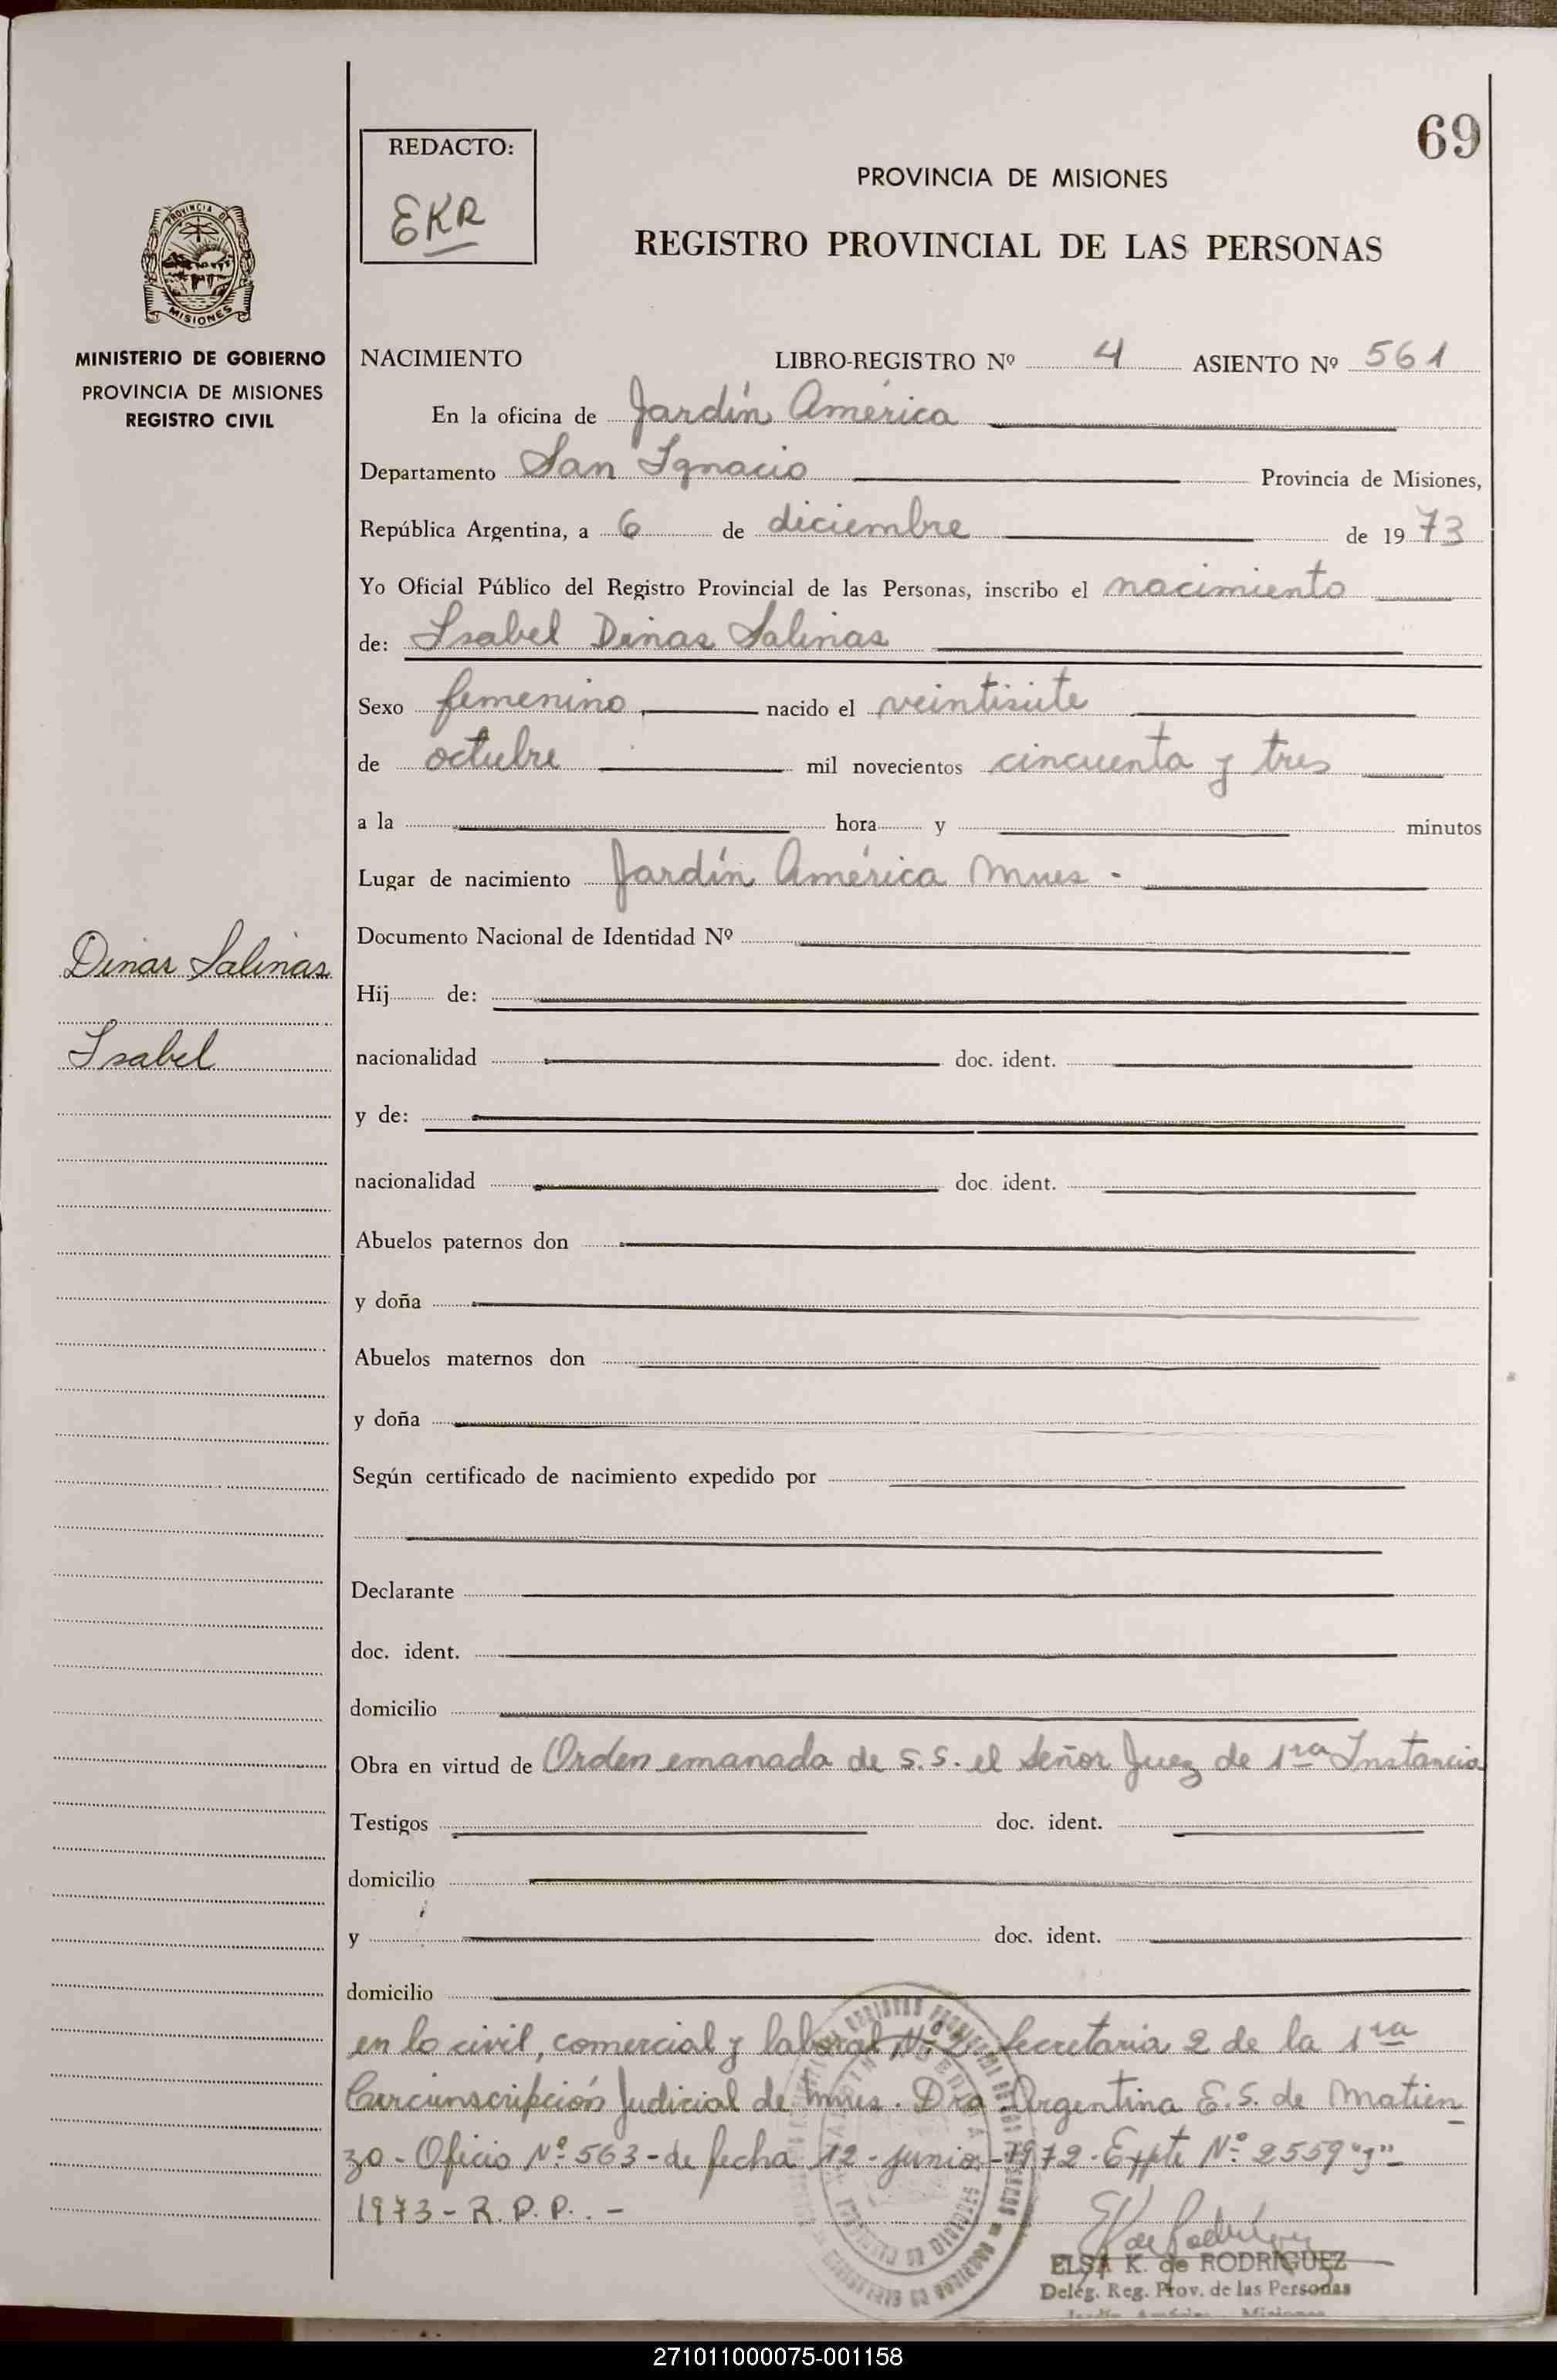 69
REDACTO:
EKR
PROVINCIA DE MISIONES
REGISTRO PROVINCIAL DE LAS PERSONAS
PROVINCIA DE
MISIONES
MINISTERIO DE GOBIERNO
PROVINCIA DE MISIONES
REGISTRO CIVIL
Dinas Salinas
Isabel
NACIMIENTO LIBRO-REGISTRO Nº 4 ASIENTO Nº 561
En la oficina de Jardín América
Departamento San Ignacio Provincia de Misiones,
República Argentina, a 6 de diciembre de 1973
Yo Oficial Público del Registro Provincial de las Personas, inscribo el nacimiento
de: Isabel Dinas Salinas
Sexo femenino nacido el veintisiete
de octubre mil novecientos cincuenta y tres
a la hora y minutos
Lugar de nacimiento Jardín América Mnes -
Documento Nacional de Identidad Nº
Hij de:
nacionalidad doc. ident.
y de:
nacionalidad doc. ident.
Abuelos paternos don
y doña
Abuelos maternos don
y doña
Según certificado de nacimiento expedido por
Declarante
doc. ident.
domicilio
Obra en virtud de Orden emanada de S.S. el Señor Juez de 1ra Instancia
Testigos doc. ident.
domicilio
y doc. ident.
domicilio
en lo civil, comercial y laboral Nº Secretaria 2 de la 1ra
Circunscripción Judicial de Mnes. Dra Argentina E.S. de Matien
zo - Oficio Nº 563 - de fecha 12 - junio - 1972 - Expte Nº 2559 "J"-
1973 - R.P.P. . -
ELSA K. de RODRIGUEZ
Deleg. Reg. Prov. de las Personas
271011000075-001158